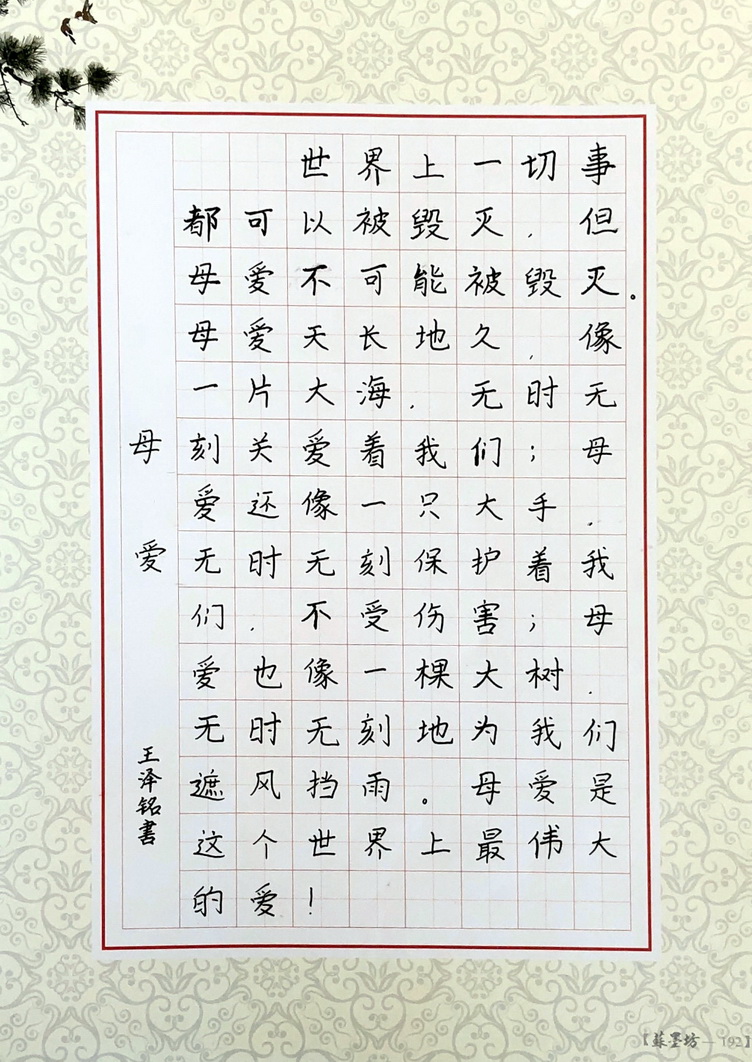 母爱
世界上一切事
都可以被毁灭，但
母爱不可能被毁灭。
母爱天长地久，像
一片大海，无时无
刻关爱着我们；母
爱还像一只大手，
无时无刻保护着我
们，不受伤害；母
爱也像一棵大树，
无时无刻地为我们
遮风挡雨。母爱是
这个世界上最伟大
的爱！
王泽铭書
【蘇墨坊—192】